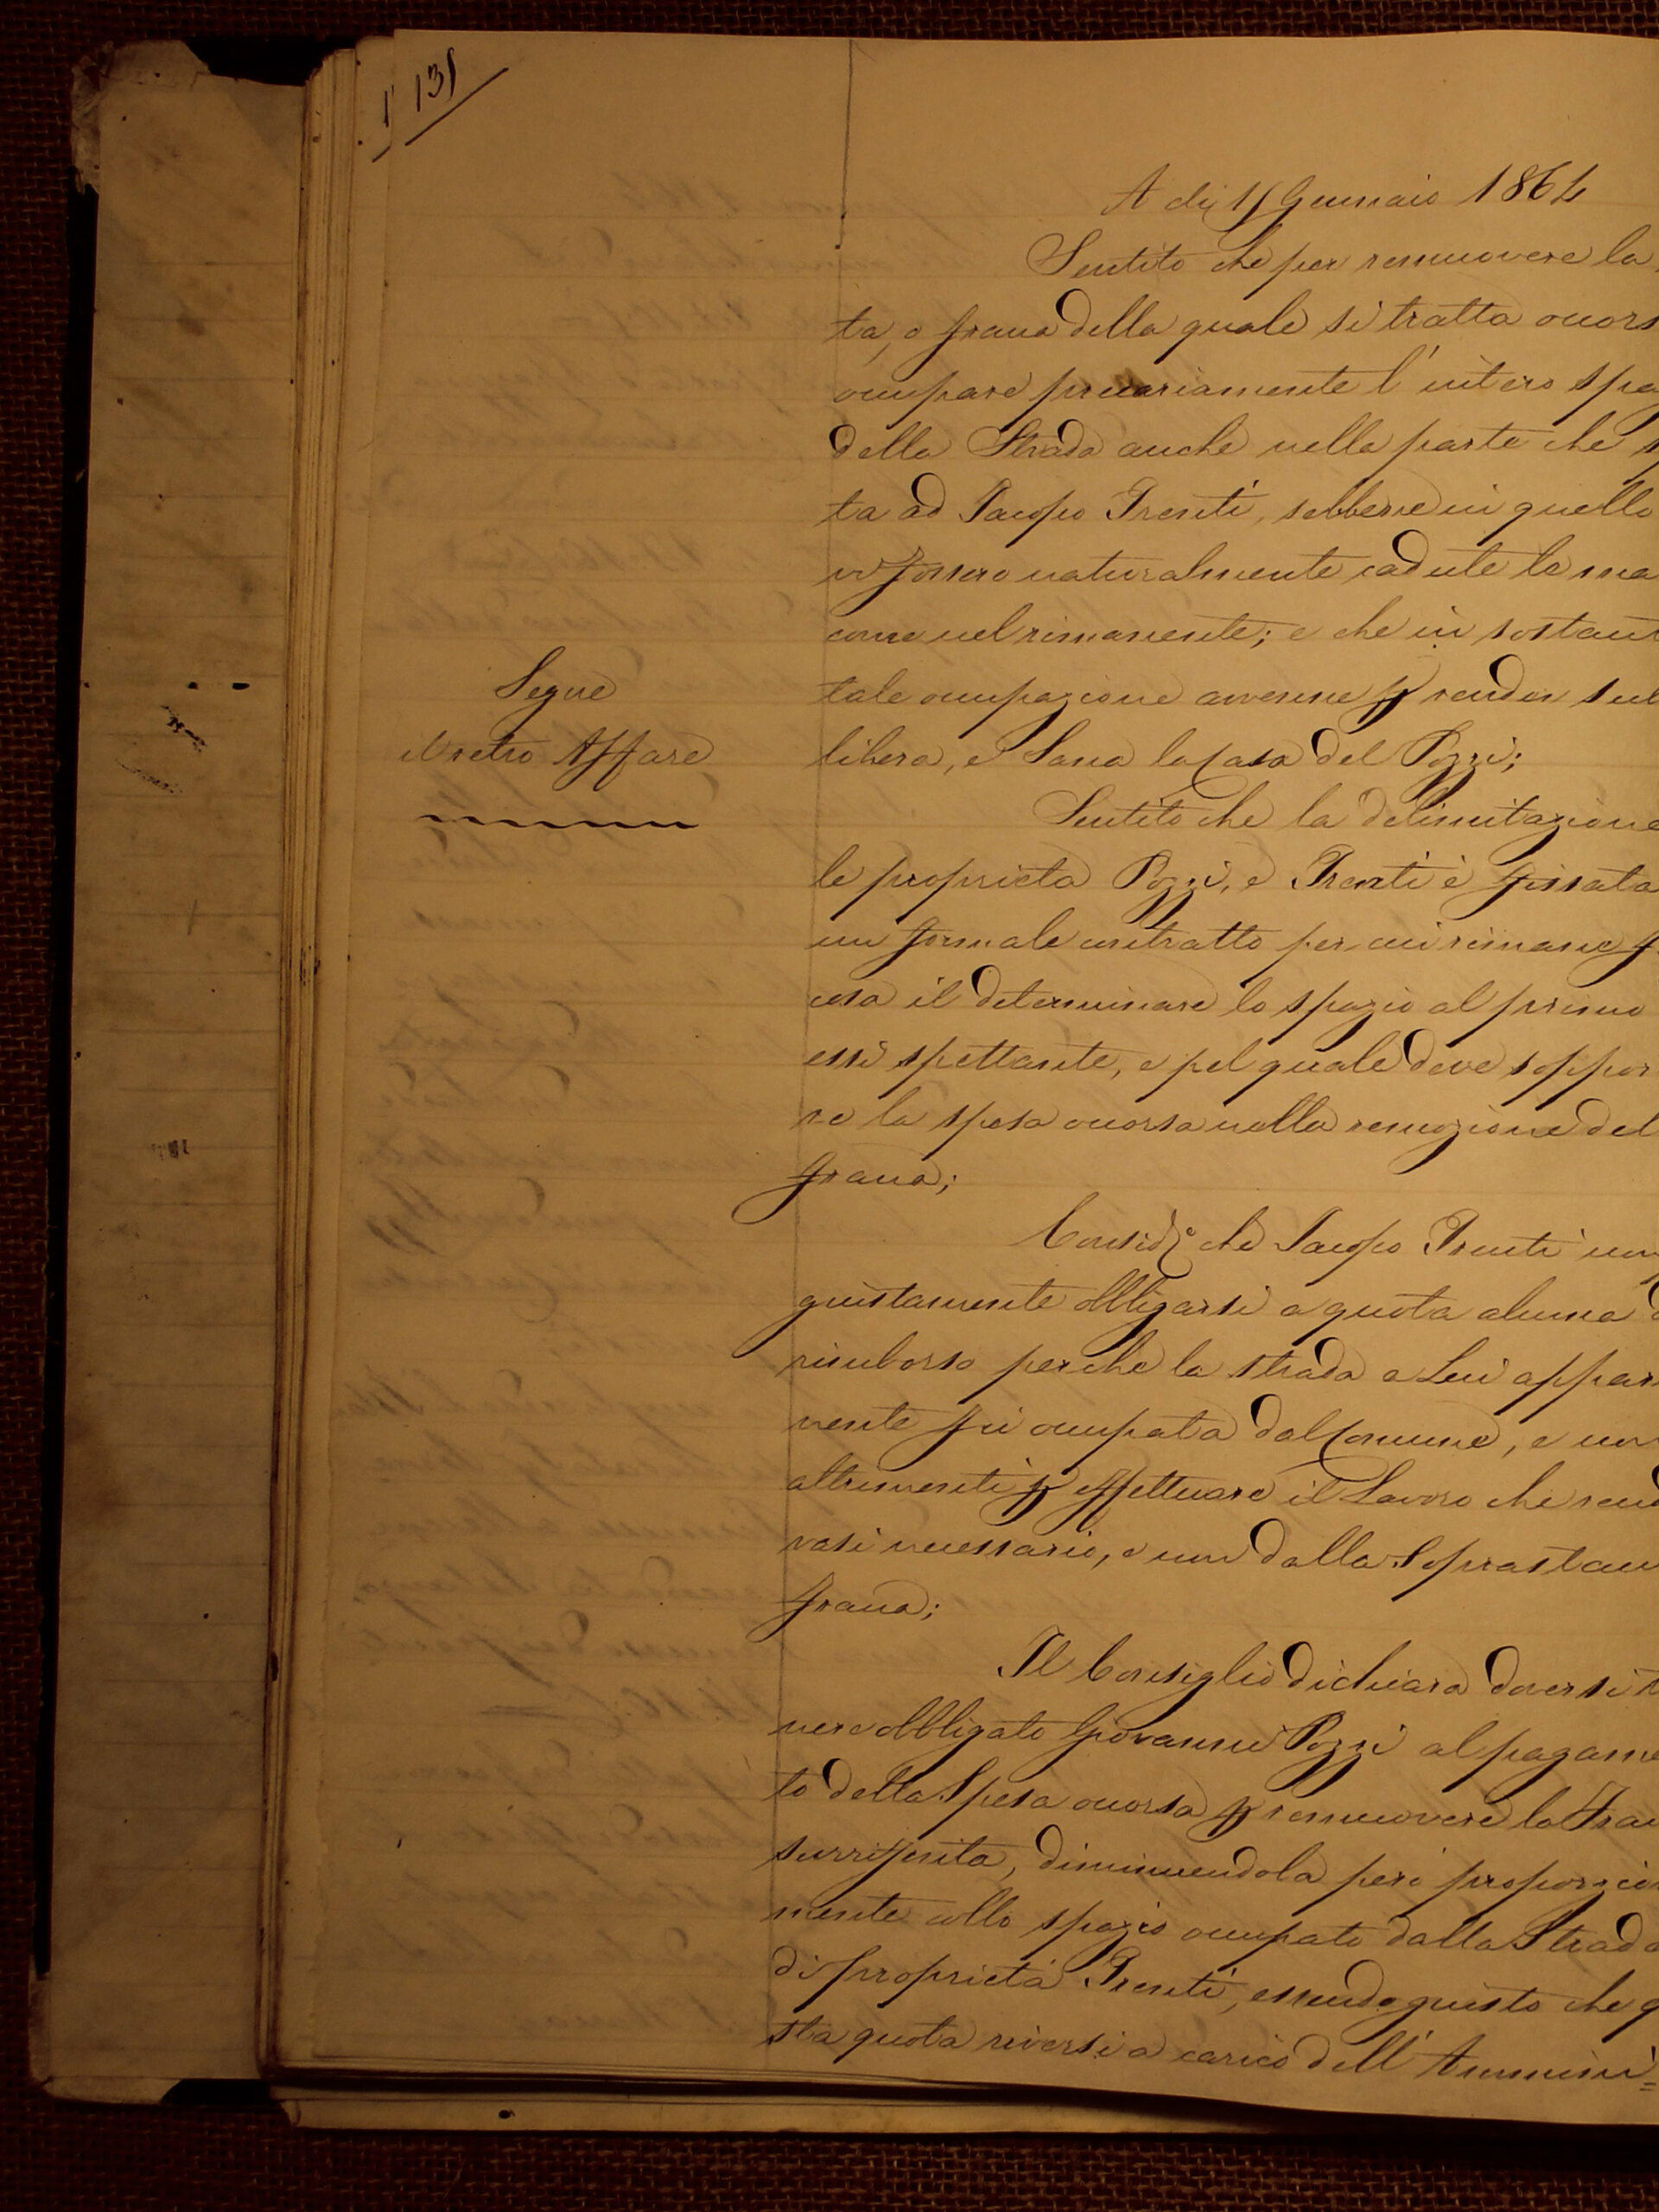 135
A dì 15 Gennaio 1864
Sentito che per remuovere la
ta, o frana della quale si tratta occors
occupare precariamente l'intero spa
della Strada anche nella parte che s
ta ad Jacopo Trenti, sebbene in quella
vi fossero naturalmente cadute le ma
come nel rimanente; e che in sostan
tale occupazione avvenne p render
libera, e Sana la Casa del Pozzi;
Segue
il retro Affare
Sentito che la delimitazione
le proprietà Pozzi, e Trenti è fissata
un formale contratto per cui rimane f
cosa il determinare lo spazio al primo
essi spettante, e pel quale deve soppor
re la spesa occorsa nella remozione del
frana;
Consid.e che Jacopo Trenti non
giustamente obbligarsi a quota alcuna d
rimborso perche la strada a Lui appar
nente fu occupata dal Comune, e non
altrimenti p effettuare il Lavoro che rend
vasi necessario, e non dalla Soprastan
frana;
Il Consiglio dichiara doversi
nere obbligato Giovanni Pozzi al pagame
to della Spesa occorsa p remuovere la Fran
surriferita, diminuendola però proporzio
mente allo spazio occupato dalla Strada
di proprietà Trenti, essendo giusto che q
sta quota riversi a carico dell'Ammini=